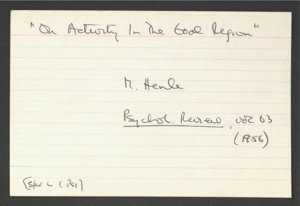 "On Activity In The Goal Region"
M. Henle
Psychol. Review, vol 63
(1956)